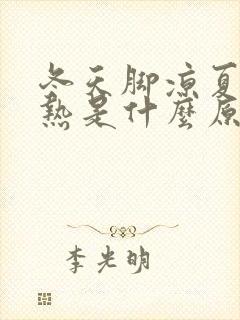 冬天脚凉夏
热是什麼原
李光明